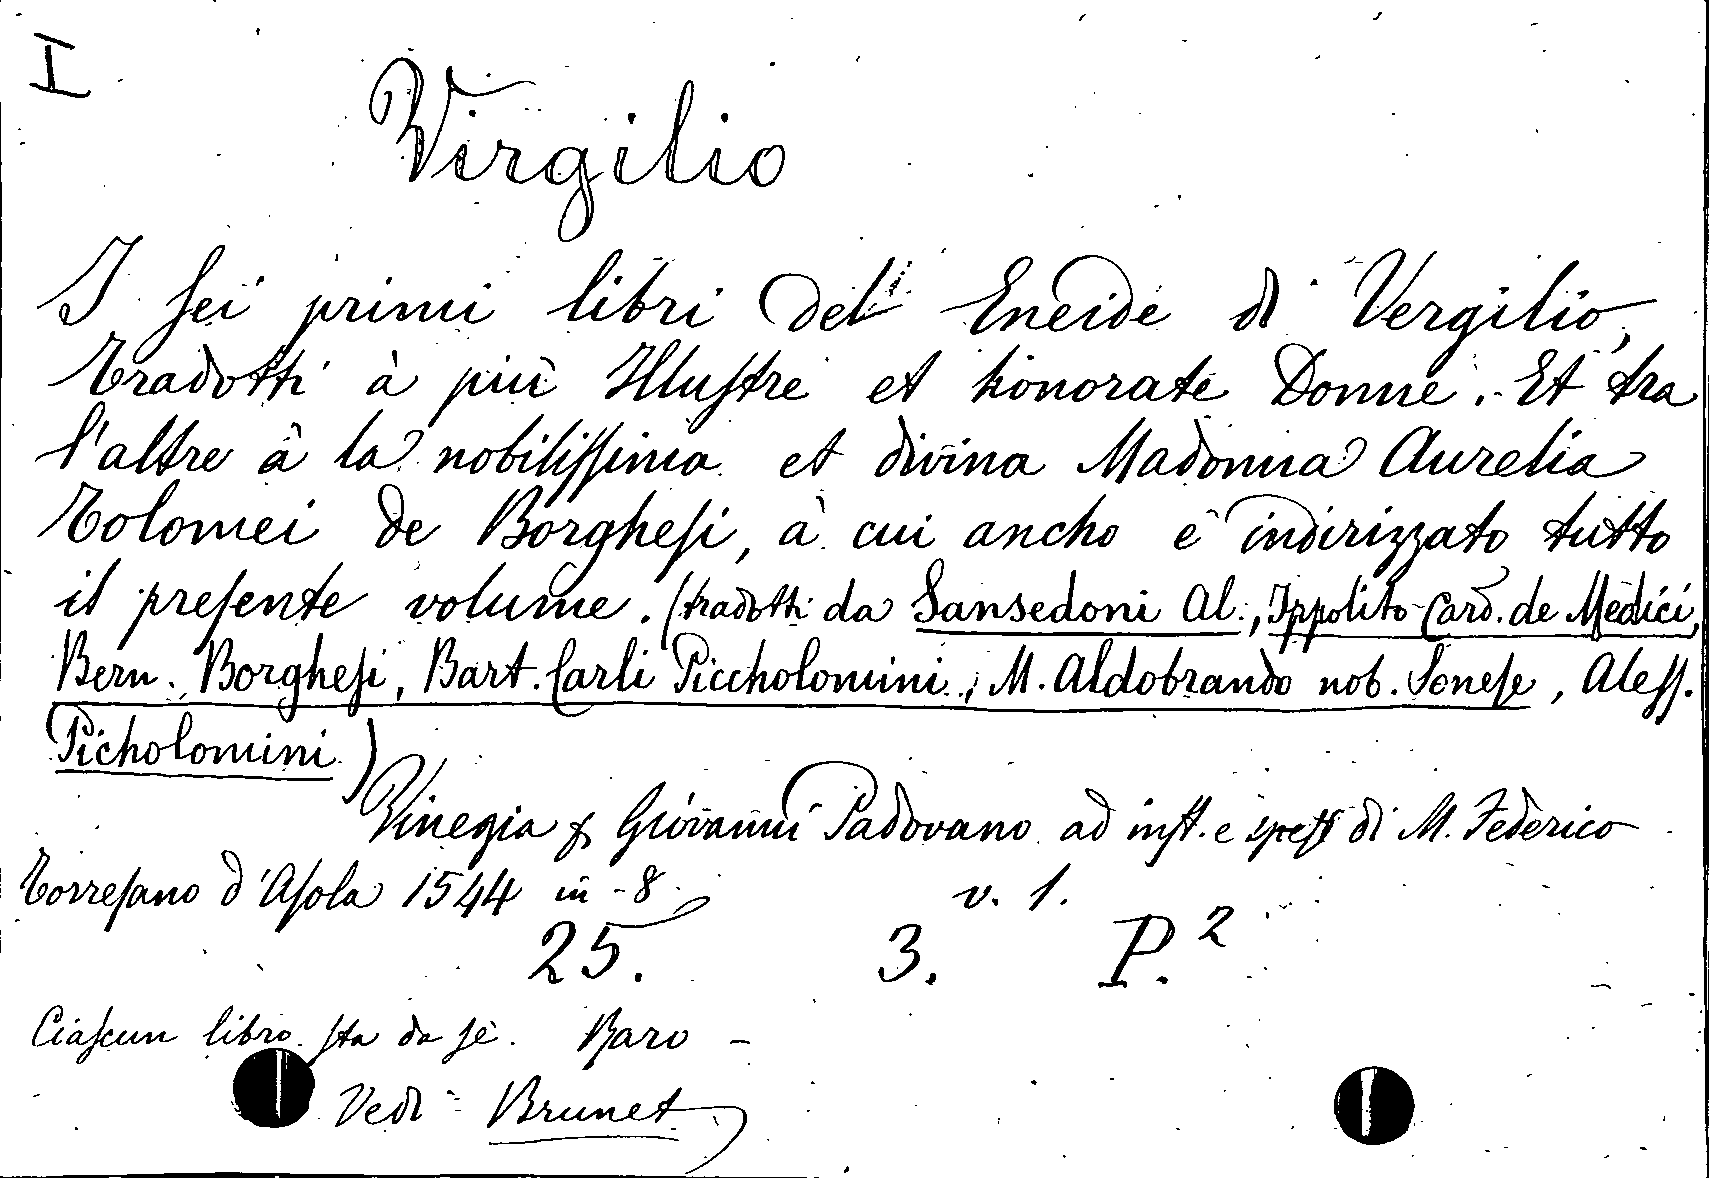 I
Virgilio
I sei primi libri del' Eneide di Vergilio,
tradotti à più Illustre et honorate Donne. Et tra
l'altre à la nobilissima et divina Madonna Aurelia
Tolomei de Borghesi, à cui ancho è indirizzato tutto
il presente volume. (tradotti da Sansedoni Al., Ippolito Card. de Medici,
Bern. Borghesi, Bart. Carli Piccholomini, M. Aldobrando nob. Senese, Aless.
Picholomini)
Vinegia p Giovanni Padovano ad inst. e spess di M. Federico
Torresano d'Asola 1544 in-8 v. 1.
25. 3. P.2
Ciascun libro sta da sè. Raro -
Vedi Brunet